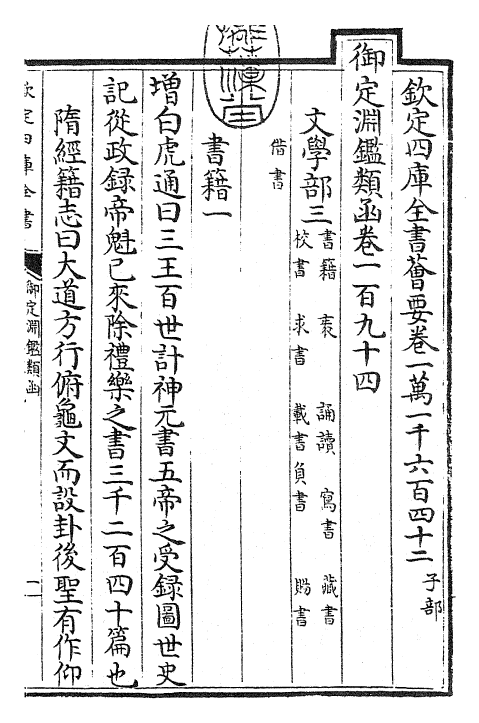 欽定四庫全書薈要卷一萬一千六百四十二 子部
御定淵鑑類函卷一百九十四
文學部三 書籍 袠 誦讀 寫書 藏書
校書 求書 載書負書 賜書
借書
書籍一
增白虎通曰三王百世計神元書五帝之受録圖世史
記從政録帝魁已來除禮樂之書三千二百四十篇也
隋經籍志曰大道方行俯龜文而設卦後聖有作仰
欽定四庫全書
御定淵鑑類函